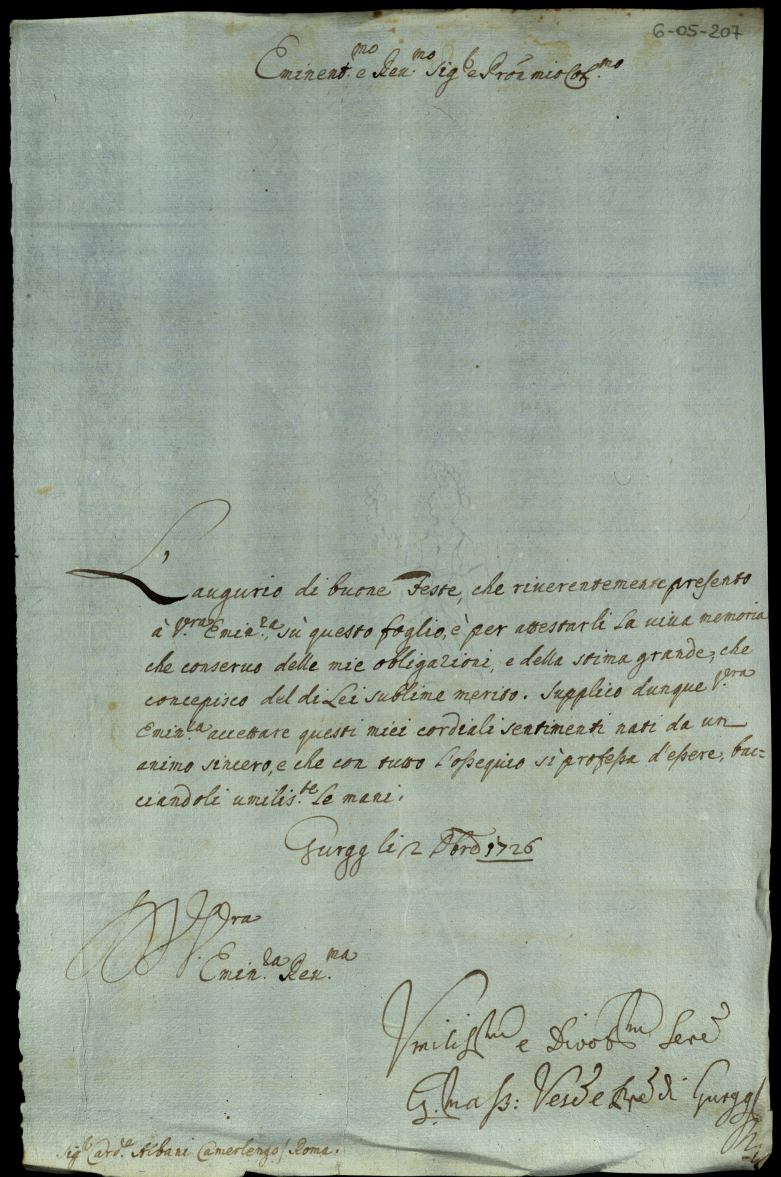 6-05-207
Eminent.mo e Reu.mo Sig.r e Prõn mio Col.mo
L'augurio di buone Feste, che riuerentemente presento
à V.ra Emin.za sù questo foglio, è per attestarli la uiua memoria
che conseruo delle mie obligazioni, e della stima grande, che
concepisco del di Lei sublime merito. Supplico dunque V.ra
Emin.za accettare questi miei cordiali sentimenti nati da un
animo sincero, e che con tutto l'ossequio si professa d'essere, bac=
ciandoli umilis.te le mani.
Gurgg li 2 Xbre 1726
Vra
Emin.za Reu.ma
Vmiliss.mo e Divot.mo Ser.e
Vesc.o e di Gurgg
Sig.r Card.le Albani Camerlengo / Roma.